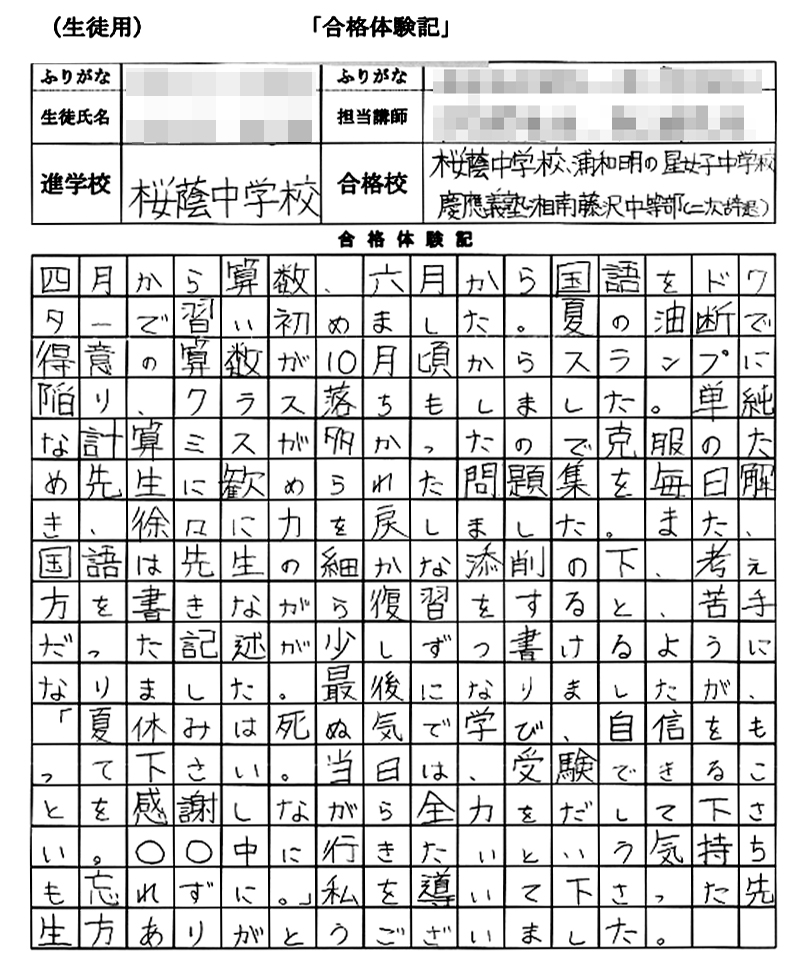 （生徒用）　「合格体験記」
ふりがな　ふりがな
生徒氏名　担当講師
進学校　桜蔭中学校　合格校　桜蔭中学校、浦和明の星女子中学校
慶應義塾湘南藤沢中等部（二次辞退）
合格体験記
四月から算数、六月から国語をドク
ターで習い初めました。夏の油断で
得意の算数が10月頃からスランプに
陥り、クラス落ちもしました。単純
な計算ミスが多かったので克服のた
め先生に歓められた問題集を毎日解
き、徐々に力を戻しました。また、
国語は先生の細かな添削の下、考え
方を書きながら復習をすると、苦手
だった記述が少しずつ書けるように
なりました。最後になりましたが、
「夏休みは死ぬ気で学び、自信をも
って下さい。当日は、受験できるこ
とを感謝しながら全力をだして下さ
い。〇〇中に行きたいという気持ち
も忘れずに。」私を導いて下さった先
生方ありがとうございました。